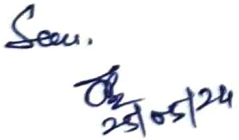 Seen.
25/05/24